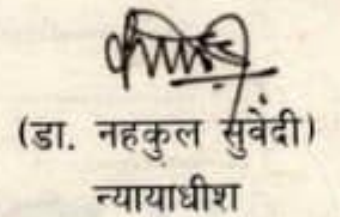 (डा. नहकुल सुवेदी)
न्यायाधीश